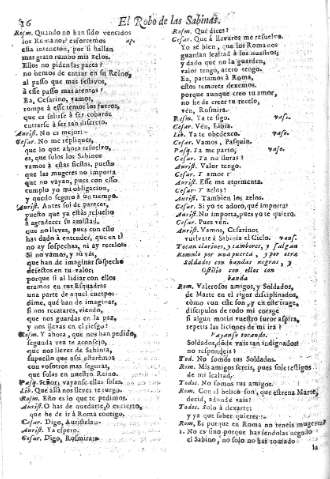 16
El Robo de las Sabinas.
Rosm. Quando no han sido vencidos
los Romanos? escusemos
esta intencion, por si hallan
mas grato nuestro
Ellos no piden las paces?
no hemos de entrar en su Reyno,
al passo que mas festivos,
à esse passo mas atentos?
Ea, Cesarino, vamos,
rompa à esse temor los fueros,
que es
entrarse à ser tan discreto.
Aurist. No es mejor-
Cesar. No me repliques,
que lo que ahora resuelvo,
es, que solos los Sabinos
vamos à estas fiestas, puesto
que las mugeres no importa
que no vayan, pues con esso
cumplo yo mi obligacion,
y quedo seguro à un tiempo.
Aurist. Antes sol de pareces,
puesto que ya estàs resuelto
à agradecer su amistad,
que nos lleves, pues con esto
has dado à entender, que en tì
no ay sospechas, ni ay rezelos:
Si no vamos, y tù vàs,
que han de imaginar sospecho
defectos en tu valor,
porque si al lidiar con ellos
eramos en tus Esquadras
una parte de aquel cuerpo:
dime, què han de imaginar,
si nos recatares, viendo,
que nos guardas en la paz,
y nos llevas en el riesgo?
Rosm. Y ahora, que nos han pedido,
segunda vez te aconsejo,
que nos lleves de Sabinia,
supuesto que assi afrentamos
con vosotros mas seguras,
que solas en nuestro Reyno.
Pasq. Señor, vayanse ellas solas.
Lib. Que allà nos lleves te ruego.
Rosm. Esto es lo que te pedimos.
Aurist. O has de quedarte, ò es cierto,
que he de ir à Roma contigo.
Cesar. Digo, Auristela-
Aurist. Ya espero.
Cesar. Digo, Rosmira-
Rosm. Que dices?
Cesar. Que à llevaros me resuelvo.
Yo sè bien, que los Romanos
guardan lealtad à los nuestros,
y dado que no la guarden,
valor tengo, aceros tengo.
Ea, partamos à Roma,
estos temores dexemos,
porque aunque creo tu amor,
no he de creer tu rezelo,
vèn, Rosmira.
Rosm. Ya te sigo. vase.
Cesar. Vèn, Libia.
Lib. Ya te obedezco. vase.
Cesar. Vamos, Pasquin.
Pasq. Ya me parto. vase.
Cesar. Tu no lloras?
Aurist. Valor tengo.
Cesar. Y amor?
Aurist. Esse me atormenta.
Cesar. Y zelos?
Aurist. Tambien los zelos.
Cesar. Si yo te adoro, què importa?
Aurist. No importa, pues yo te quiero.
Cesar. Vèn.
Aurist. Vamos, Cesarino:
vuelvete à Sabinia el Cielo. vase.
Tocan clarines, y tambores, y salgan
Romulo por una puerta, y por otra
Soldados con bandas negras, y
con ellos con
banda
Rom. Valerosos amigos, y Soldados,
de Marte en el rigor disciplinados,
còmo con esse son, y en esse modo,
discipulos de todo mi corage
si algun motin vuestro furor aspira,
repetìs las liciones de mi ira?
Vayanse tocando.
Soldados, dònde vais tan indignados?
no respondeis?
Tod. No somos tus Soldados.
Rom. Mis amigos sereis, pues sois testigos
de mi lealtad.
Tod. No somos tus amigos.
Rom. Con el belico son, que esfrena Marte,
decid, adònde vais?
Todos. Solo à dexarte;
y ya que saber quieres-
Rom. Es porque en Roma no teneis mugeres?
No es sino porque han sentido luego
el Sabino, no solo no han tomado
la